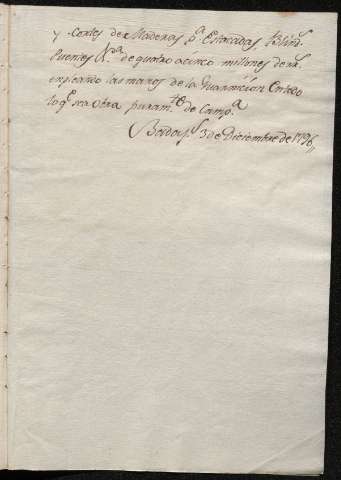 y Cortes de Maderas pª Estacadas, Blindˢ
Puentes &ª de quatro a cinco millones de rˢ
empleando las manos de la Guarnicion en todo
lo qᵉ sea obra puramᵗᵉ de Campª
Badajˢ 3 de Diciembre de 1796